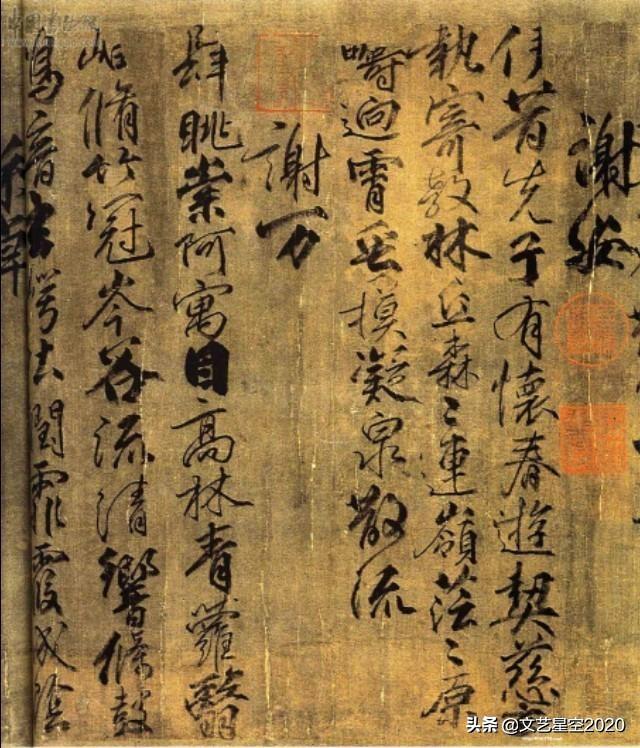 謝安
伊昔先子有懷春遊契茲
執寄敖林丘森〻連嶺茫〻原
疇迥霄垂凝泉散流
謝万
肆眺崇阿寓目高林青蘿翳
岫脩竹冠岑谷流清響條鼓
鳴音玄崿吐潤霏成陰
头条 @文艺星空2020